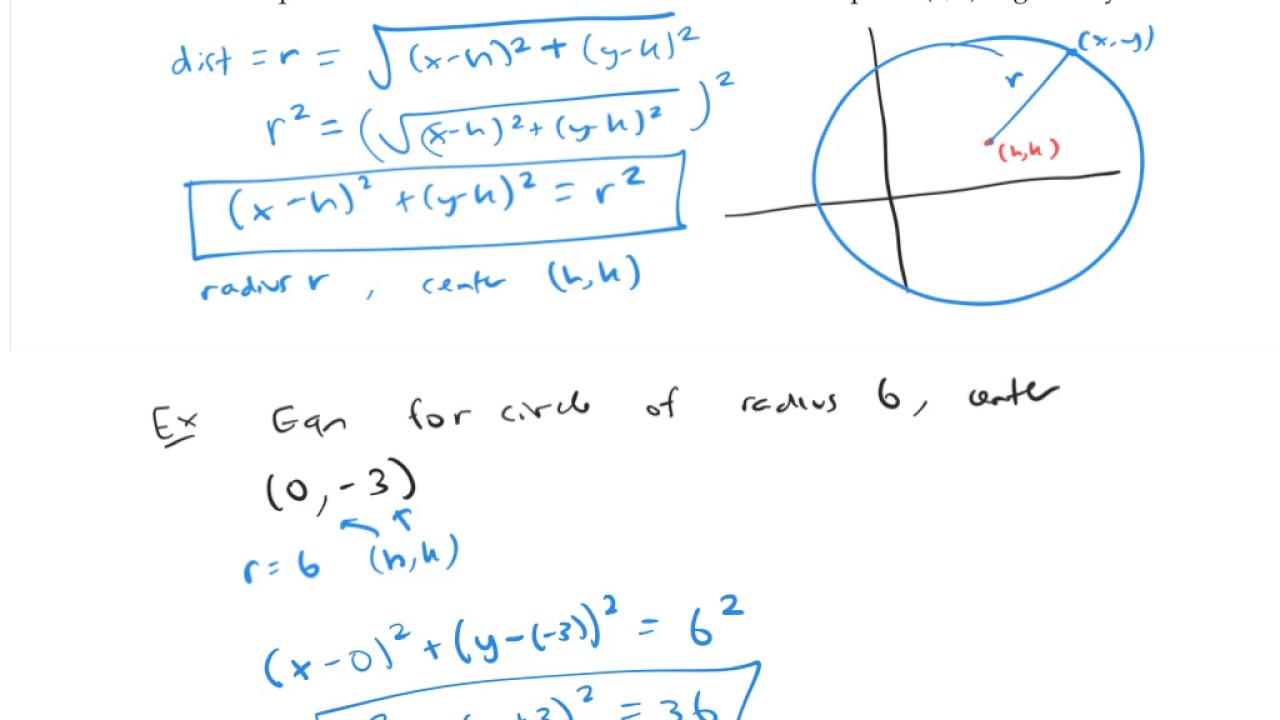 dist = r = √(x-h)² + (y-k)²
r² = (√(x-h)² + (y-k)²)²
(x-h)² + (y-k)² = r²
radius r , center (h,k)
(x,y)
r
(h,k)
Ex Eqn for circle of radius 6, center
(0, -3)
r = 6 (h,k)
(x-0)² + (y-(-3))² = 6²
+3)² = 36